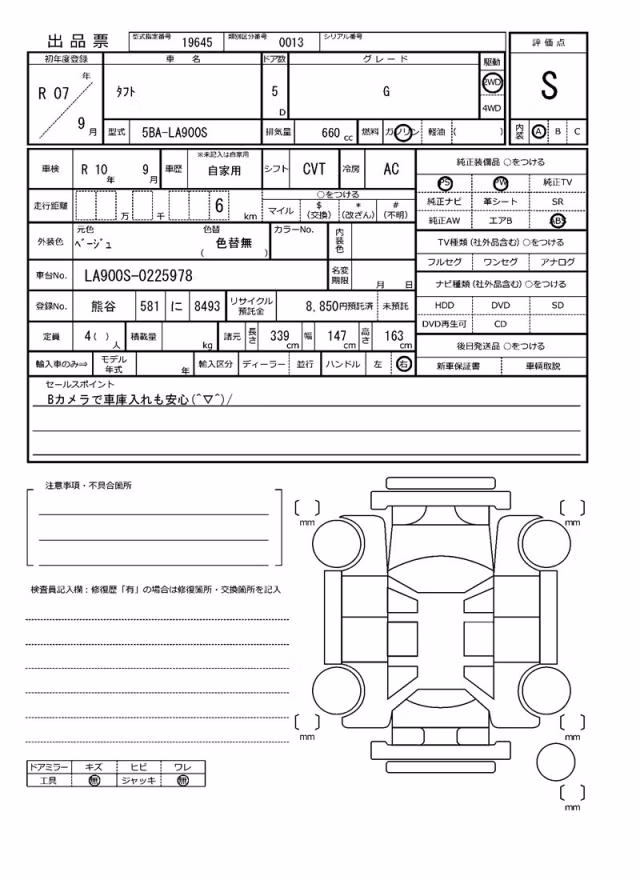 出品票 型式指定番号 19645 類別区分番号 0013 シリアル番号
初年度登録 車名 ドア数 グレード 駆動 評価点
R 07 年 9 月 タフト 5 D G 2WD 4WD S
型式 5BA-LA900S 排気量 660 cc 燃料 ガソリン 軽油 ( ) 内装 A B C
車検 R 10 年 9 月 車歴 ※未記入は自家用 自家用 シフト CVT 冷房 AC 純正装備品 ○をつける
PS PW 純正TV
走行距離 万 千 6 km ○をつける 純正ナビ 革シート SR
マイル $ (交換) * (改ざん) # (不明) 純正AW エアB ABS
外装色 元色 ベージュ 色替 色替無 ( ) カラーNo. 内装色 TV種類 (社外品含む) ○をつける
フルセグ ワンセグ アナログ
車台No. LA900S-0225978 名変期限 月 日 ナビ種類 (社外品含む) ○をつける
登録No. 熊谷 581 に 8493 リサイクル預託金 8,850円預託済 未預託 HDD DVD SD
DVD再生可 CD
定員 4( ) 人 積載量 kg 諸元 長さ 339 cm 幅 147 cm 高さ 163 cm 後日発送品 ○をつける
輸入車のみ⇒ モデル年式 年 輸入区分 ディーラー 並行 ハンドル 左 右 新車保証書 車輌取説
セールスポイント
Bカメラで車庫入れも安心(^▽^)/
注意事項・不具合箇所
mm
mm
検査員記入欄：修復歴「有」の場合は修復箇所・交換箇所を記入
mm
mm
ドアミラー キズ ヒビ ワレ
工具 無 ジャッキ 無
mm